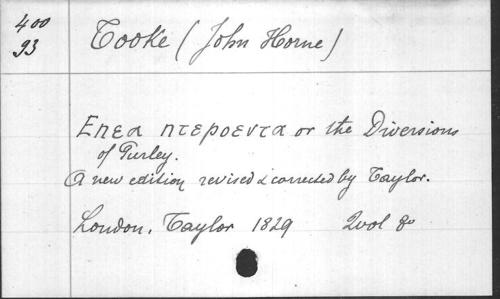 400
93
Tooke (John Horne)
Επεα πτεροεντα or the Diversions
of Purley.
A new edition revised & corrected by Taylor.
London, Taylor 1829 2 vol 8o